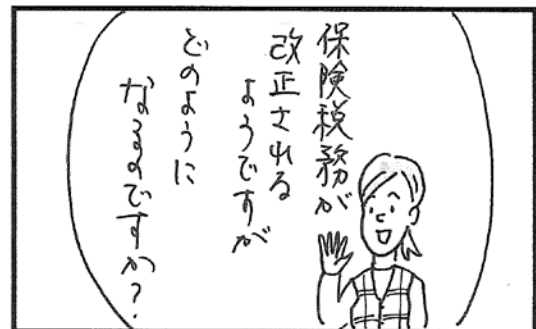 保険税務が
改正される
ようですが
どのように
なるのですか?